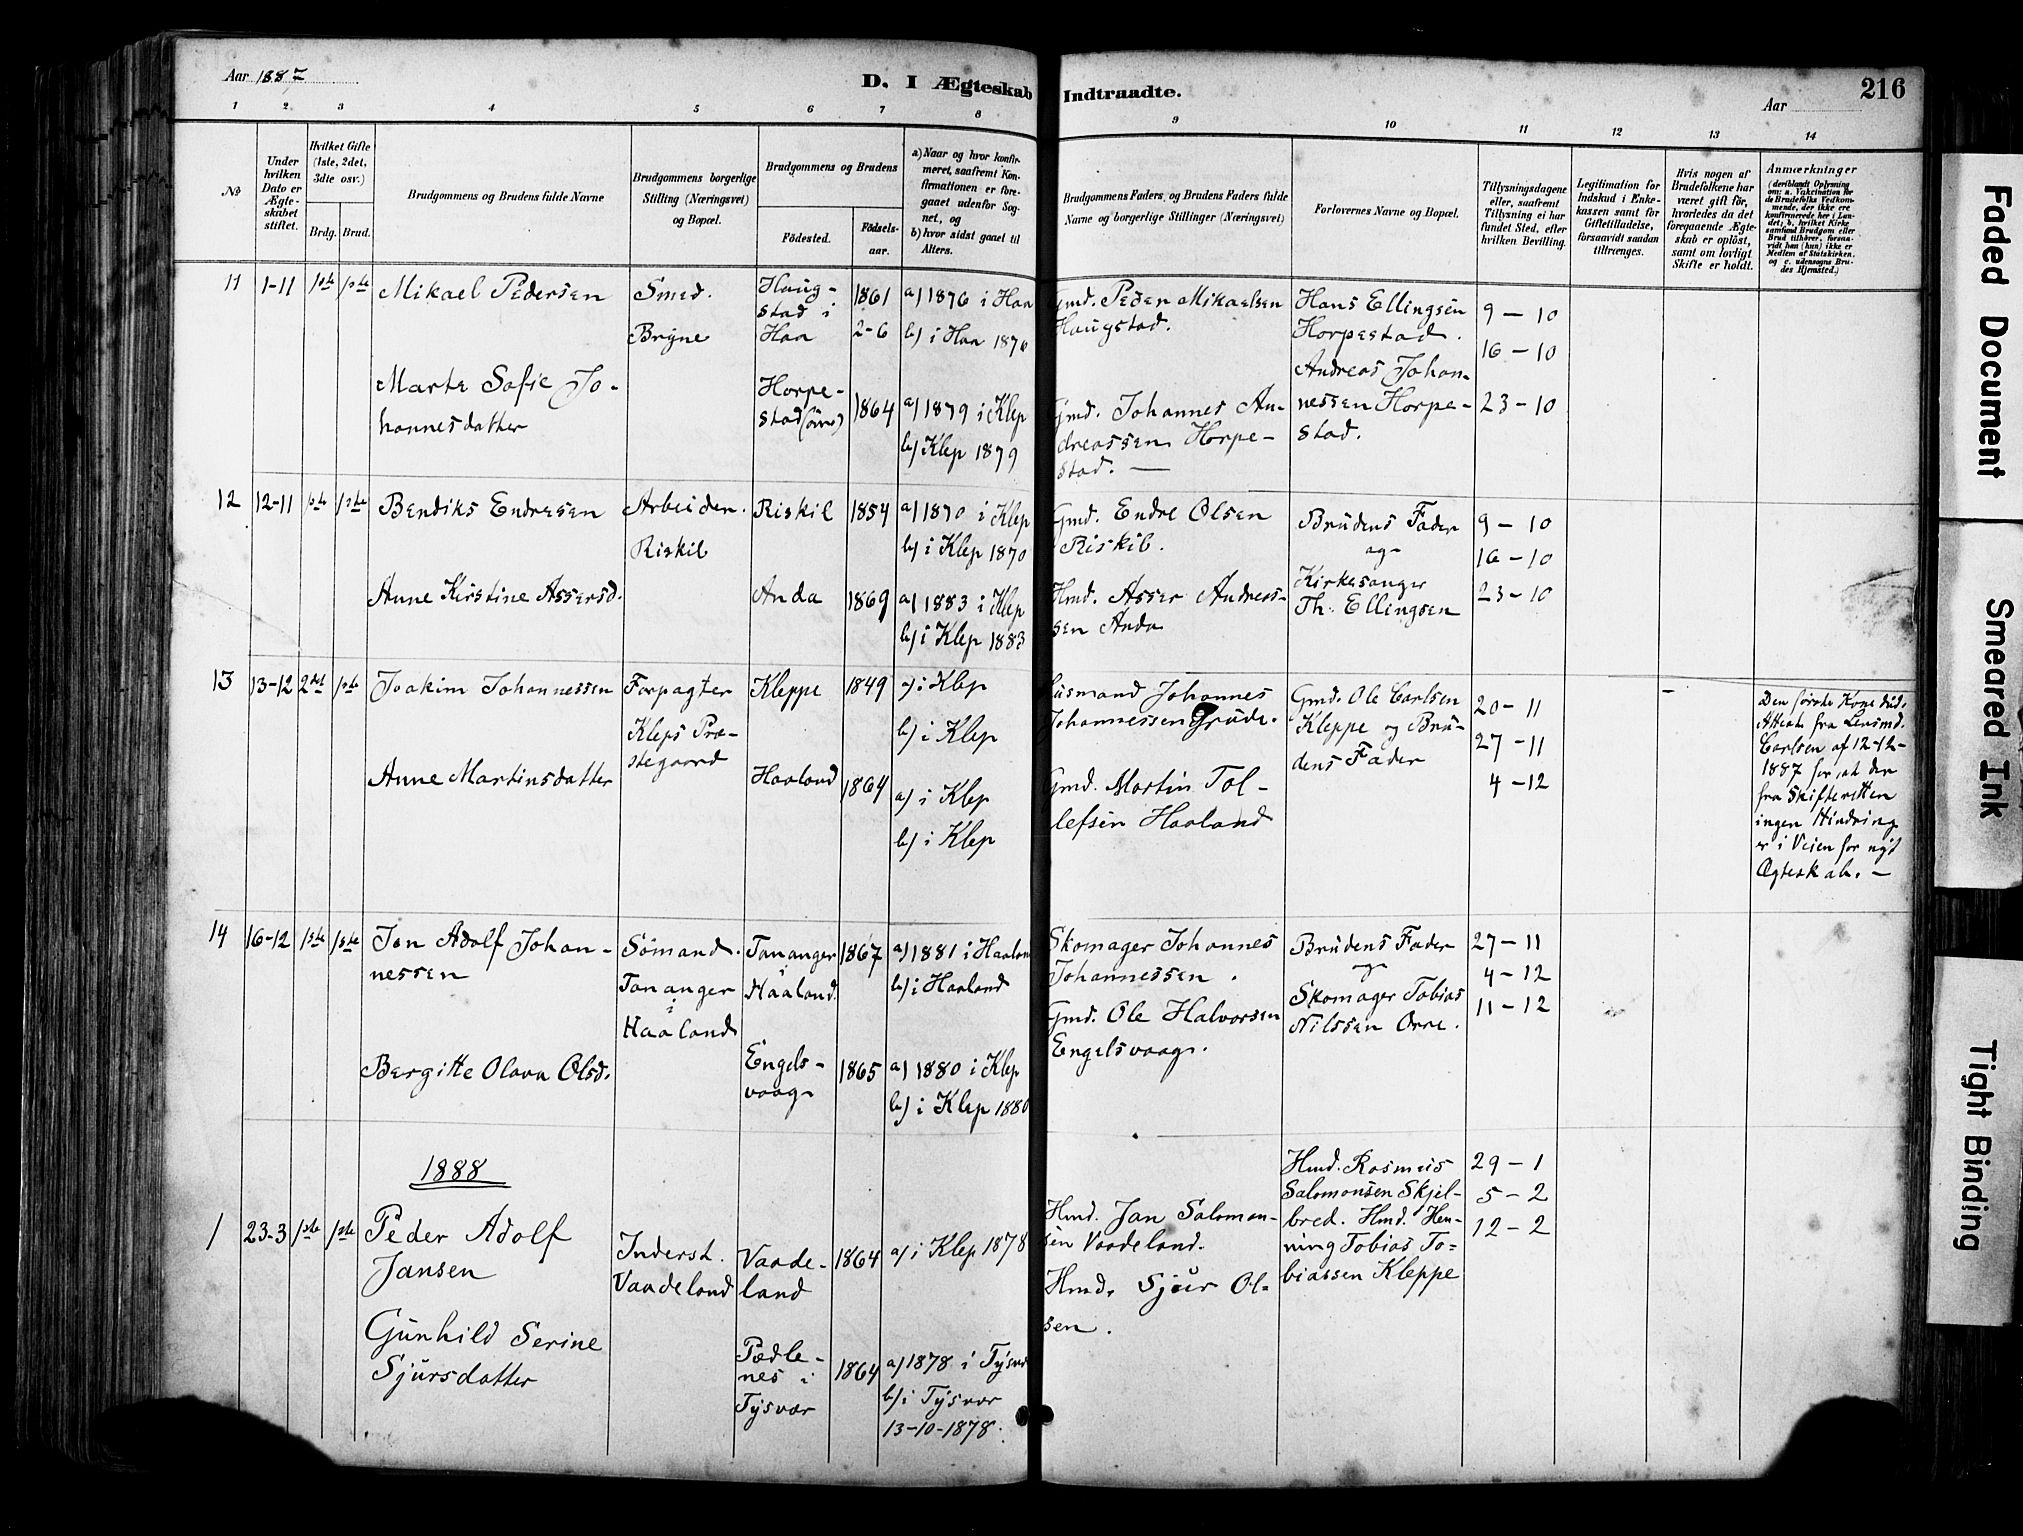 Aar 1887
D. I Ægteskab Indtraadte.
Aar
216
1 2 3 4 5 6 7 8 9 10 11 12 13 14
№
Under hvilken Dato er Ægteskabet stiftet.
Hvilket Gifte (1ste, 2det, 3die osv.)
Brdg. Brud.
Brudgommens og Brudens fulde Navne
Brudgommens borgerlige Stilling (Næringsvei) og Bopæl.
Brudgommens og Brudens
Födested.
Födselsaar.
a) Naar og hvor konfirmeret, saafremt Konfirmationen er foregaaet udenfor Sognet, og
b) hvor sidst gaaet til Alters.
Brudgommens Faders, og Brudens Faders fulde Navne og borgerlige Stillinger (Næringsvei)
Forlovernes Navne og Bopæl.
Tillysningsdagene eller, saafremt Tillysning ei har fundet Sted, efter hvilken Bevilling.
Legitimation for Indskud i Enkekassen samt for Giftetilladelse, forsaavidt saadan tiltrænges.
Hvis nogen af Brudefolkene har været gift för, hvorledes da det foregaaende Ægteskab er oplöst, samt om lovligt Skifte er holdt.
Anmærkninger
(deriblandt Oplysning om: a. Vakcination for de Brudefolks Vedkommende, der ikke ere konfirmerede her i Landet; b. hvilket Kirkesamfund Brudgom eller Brud tilhörer, forsaavidt han (hun) ikke er Medlem af Statskirken, og c. udensogns Brudes Hjemsted.)
11
1-11
1ste
1ste
Mikael Pedersen
Smed.
Bryne
Haugstad i
Haa
1861
2-6
a) 1876 i Haa
b) i Haa 1876
Gmd. Peder Mikaelsen
Haugstad.
Hans Ellingsen
Horpestad.
Andreas Johannessen Horpestad.
9 – 10
16 – 10
23 – 10
Marta Sofie Johannesdatter
Horpestad
1864
a) 1879 i Klep
b) Klep 1879
Gmd. Johannes Andreassen Horpestad. —
12
12-11
1ste
1ste
Bendiks Endresen
Arbeider.
Riskil
Riskil
1854
a) 1870 i Klep
b) i Klep 1870
Gmd. Endre Olsen
Riskil.
Brudens Fader
og
Kirkesanger
Th. Ellingsen
9 – 10
16 – 10
23 – 10
Anne Kirstine Assersd.
Anda
1869
a) 1883 i Klep
b) i Klep 1883
Hmd. Asser Andreassen Anda
13
13-12
2det
1ste
Joakim Johannessen
Forpagter
Kleps Præstegaard
Kleppe
1849
a) i Klep
b) i Klep
Husmand Johannes
Johannessen Grude.
Gmd. Ole Carlsen
Kleppe og Brudens Fader
20 – 11
27 – 11
4 – 12
Den første Kone død.
Attest fra Lensmd.
Carlsen af 12-12-
1887 for, at der
fra Skifteretten
ingen Hindring
er i Veien for nyt
Ægteskab. –
Anne Martinsdatter
Haaland
1864
a) i Klep
b) i Klep
Gmd. Martin Tollefsen Haaland
14
16-12
1ste
1ste
Jan Adolf Johannessen
Sömand.
Tananger
i
Haaland
Tananger
i
Haaland.
1867
a) 1881 i Haaland
b) i Haaland
Skomager Johannes
Johannessen.
Brudens Fader
og
Skomager Tobias
Nilssen Orre.
27 – 11
4 – 12
11 – 12
Bergitte Olava Olsd.
Engelsvaag
1865
a) 1880 i Klep
b) i Klep 1880
Gmd. Ole Halvorsen
Engelsvaag.
1888
1
23-3
1ste
1ste
Peder Adolf
Jansen
Inderst.
Vaadeland
Vaadeland
1864
a) i Klep 1878
Hmd. Jan Salomonsen Vaadeland.
Hmd. Rasmus
Salomonsen Skjelbred. Hmd. Henning Tobias Tobiassen Kleppe
29 – 1
5 – 2
12 – 2
Gunhild Serine
Sjursdatter
Padlenes i
Tysvær
1864
a) 1878 i Tysvær
b) i Tysvær
13-10-1878.
Hmd. Sjur Olsen.
Faded Document
Smeared Ink
Tight Binding